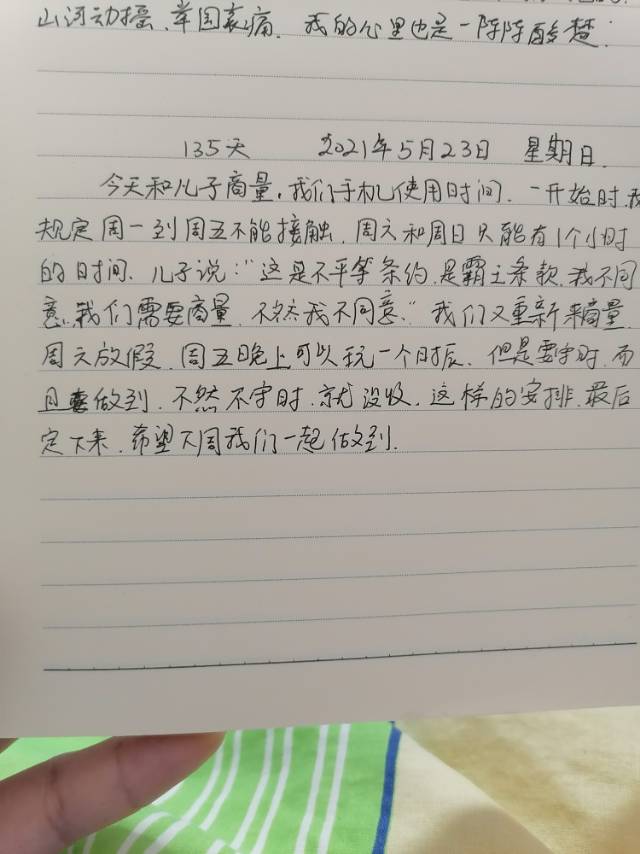 山河动摇、举国哀痛、我的心里也是一阵阵酸楚.
135天 2021年5月23日 星期日.
今天和儿子商量,我们手机使用时间. 一开始时,我
规定周一到周五不能接触,周六和周日只能有1个小时
的时间. 儿子说:“这是不平等条约,是霸王条款,我不同
意,我们需要商量,不然我不同意.”我们又重新来商量,
周六放假,周五晚上可以玩一个时辰,但是要守时,而
且要做到,不然不守时,就没收,这样的安排,最后
定下来,希望下周我们一起做到.